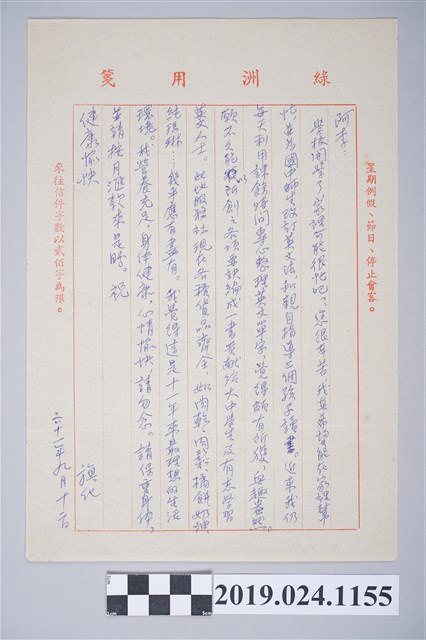 綠洲用箋
星期例假、節日、停止會客。
阿李：
學校開學了，家裡可能很忙吧？您很辛苦，我真希望能在家裡幫
忙，並為國中師生改訂英文法，和親自指導三個孩子讀書。近來我仍
每天利用課餘時間專心整理英文單字，覺得頗有所獲，興趣盎然。
願不久能以所創之各項要訣編成一書貢獻給大中學生及有志學習
英文人士。此地服務社現在各種貨品齊全，如肉乾、肉鬆、橘餅、奶粉、
純琪琳…幾乎應有盡有。我覺得這是十一年來最理想的生活
環境。我營養充足，身體健康，心情愉快，請勿念。請保重身体，
並請按月匯款來是盼。祝
健康愉快
旗化
六十一年九月十一日
來往信件字數以貳佰字為限。
1cm
5cm
2019.024.1155